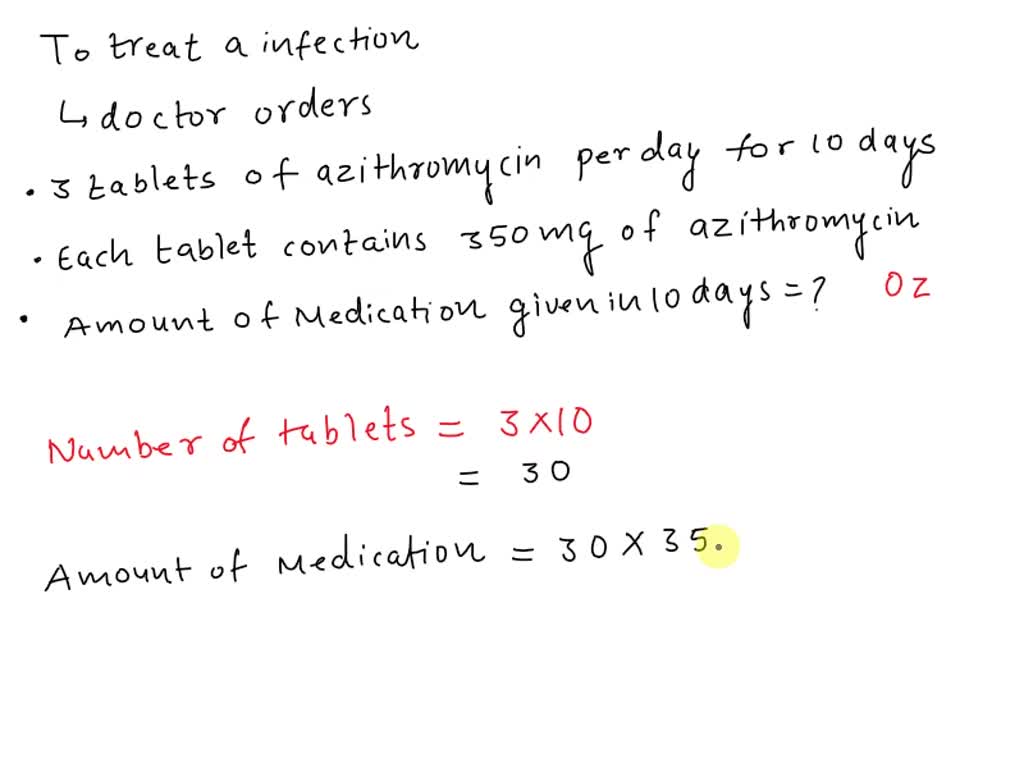 To treat a infection
↳ doctor orders
• 3 tablets of azithromycin per day for 10 days
• Each tablet contains 350 mg of azithromycin
• Amount of Medication given in 10 days = ? OZ
Number of tablets = 3×10
= 30
Amount of Medication = 30 × 35